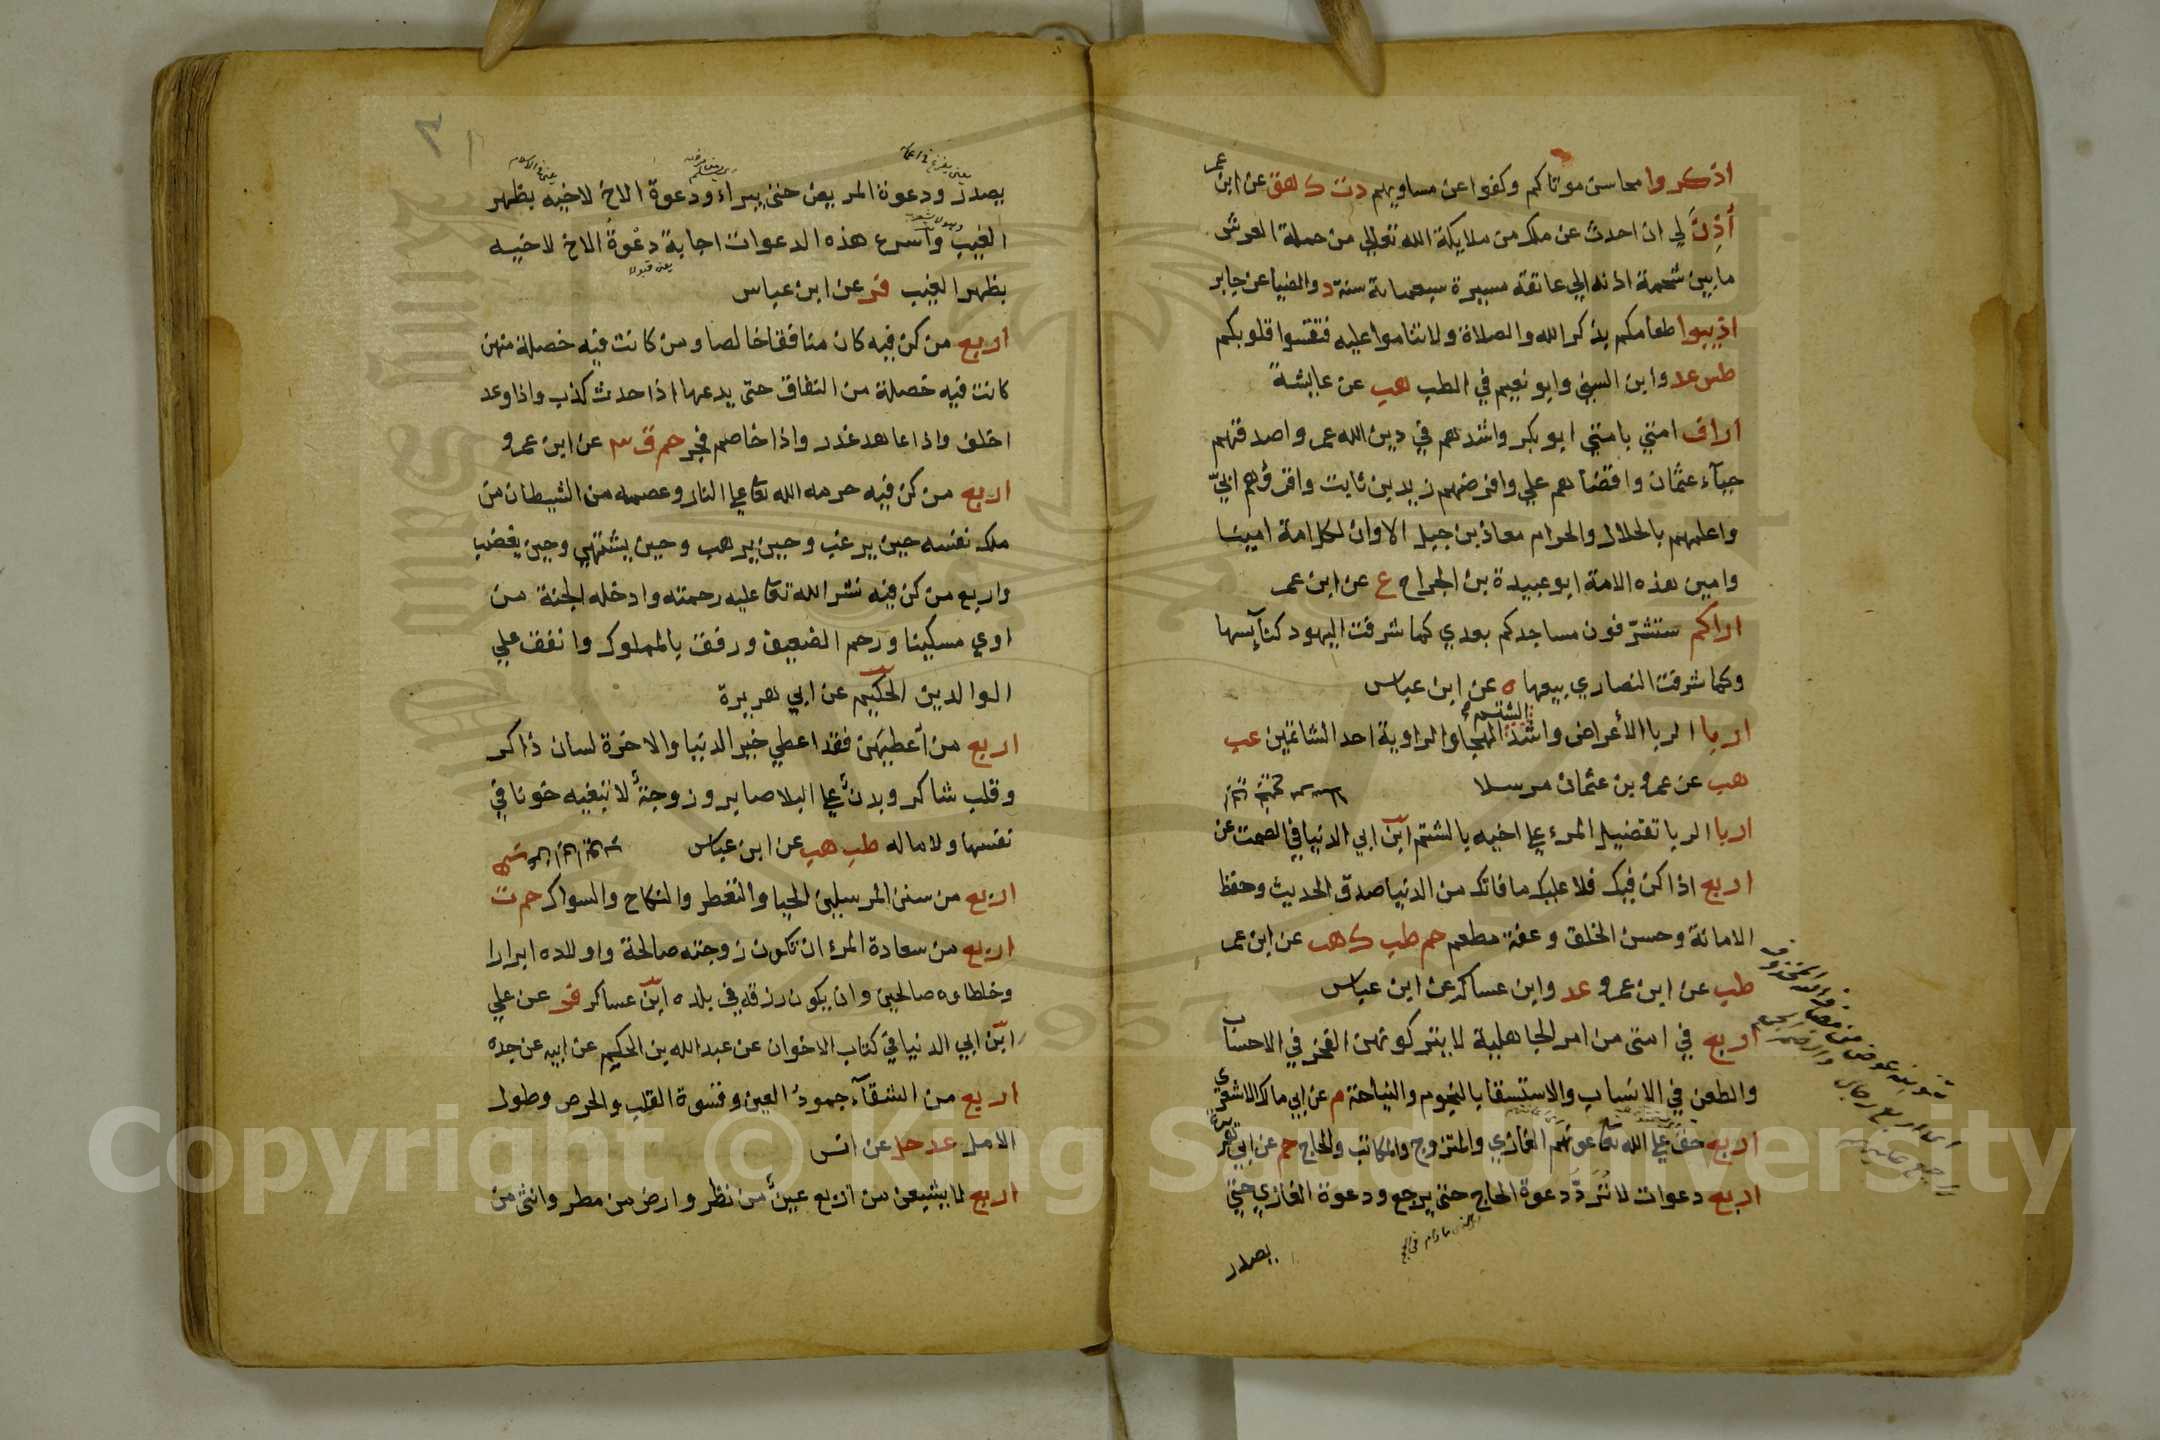 اذكروا محاسن موتاكم وكفوا عن مساويهم دت ك هق عن ابن عمر
أُذِنَ لي ان احدث عن ملك من ملايكة الله تعالي من حملة العرش
ما بين شحمة اذنه الي عاتقه مسيرة سبعماىة سنة د والضيا عن جابر
اذيبوا طعامكم بذكر الله والصلاة ولا تناموا عليه فتقسوا قلوبكم
طس عد وابن السني وابو نعيم في الطب هب عن عايشة
اراف امتي بامتي ابو بكر واشدهم في دين الله عمر واصدقهم
حيآء عثمان واقضاهم علي وافرضهم زيد بن ثابت واقرؤهم ابيّ
واعلمهم بالحلال والحرام معاذ بن جبل الا وان لكل امة امينا
وامين هذه الامة ابو عبيدة بن الجراح ع عن ابن عمر
اراكم ستشرّفون مساجدكم بعدي كما شرفت اليهود كنآيسها
وكما شرفت النصاري بيعها ه عن ابن عباس
اربا الربا الأعراض واشد الشتم الهجا والراوية احد الشاتمين عب
هب عن عمرو بن عثمان مرسلا
اربا الربا تفضيل المرء علي اخيه بالشتم ابن ابي الدنيا في الصمت عن
اربع اذا كن فيك فلا عليك ما فاتك من الدنيا صدق الحديث وحفظ
الامانة وحسن الخلق وعفة مطعم حم طب ك هب عن ابن عمر
طب عن ابن عمرو عد وابن عساكر عن ابن عباس
اربع في امتي من امر الجاهلية لا يتركونهن الفخر في الاحساب
والطعن في الانساب والاستسقا بالنجوم والنياحة م عن ابي مالك الاشعري
اربع حق علي الله تع عونهم الغازي والمتزوج والمكاتب والحاج حم عن ابي هريرة
اربع دعوات لا تُرَدّ دعوة الحاج حتي يرجع ودعوة الغازي حتي
يصدر
يصدر ودعوة المريض حتي يبراء ودعوة الاخ لاخيه بظهر
الغيب وأسرع هذه الدعوات اجابة دعْوةُ الاخ لاخيه
بظهر الغيب فر عن ابن عباس
اربع من كن فيه كان منافقا خالصا ومن كانت فيه خصلة منهن
كانت فيه خصلة من النفاق حتى يدعها اذا حدث كذب واذا وعد
اخلف واذا عاهد غدر واذا خاصم فجر حم ق ٣ عن ابن عمرو
اربع من كن فيه حرمه الله تع علي النار وعصمه من الشيطان من
ملك نفسه حين يرغب وحين يرهب وحين يشتهي وحين يغضب
واربع من كن فيه نشر الله تع عليه رحمته وادخله الجنة من
اوي مسكينا ورحم الضعيف ورفق بالمملوك وانفق علي
الوالدين الحكيم عن ابي هريرة
اربع من أعطيهن فقد اعطي خير الدنيا والاخرة لسان ذاكر
وقلب شاكر وبدن علي البلا صابر وزوجة لا تبغيه خونا في
نفسها ولا ماله طب هب عن ابن عباس
اربع من سنن المرسلين الحيا والتعطر والنكاح والسواك حم ت
اربع من سعادة المرء ان تكون زوجته صالحة واولاده ابرارا
وخلطاءه صالحين وان يكون رزقه في بلده ابن عساكر فر عن علي
ابن ابي الدنيا في كتاب الاخوان عن عبد الله بن الحكيم عن ابيه عن جده
اربع من الشقآء جمودُ العين وقسوة القلب والحرص وطول
الامل عد حل عن انس
اربع لا يشبعن من اربع عين من نظر وارض من مطر وانثى من